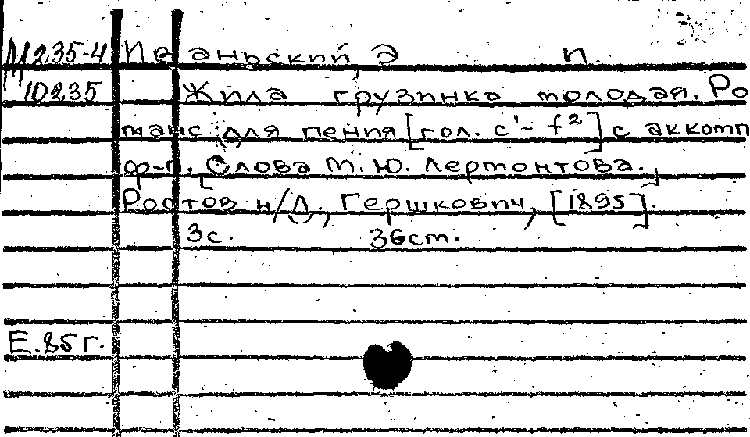 М 235-4 Иваньский Э п.
10235 Жила грузинка молодая. Ро
манс для пения [гол. c¹- f²] с аккомп
ф-п. Слова М. Ю. Лермонтова.
Ростов н/Д., Гершкович, [1895].
3с. 36см.
Е.85г.